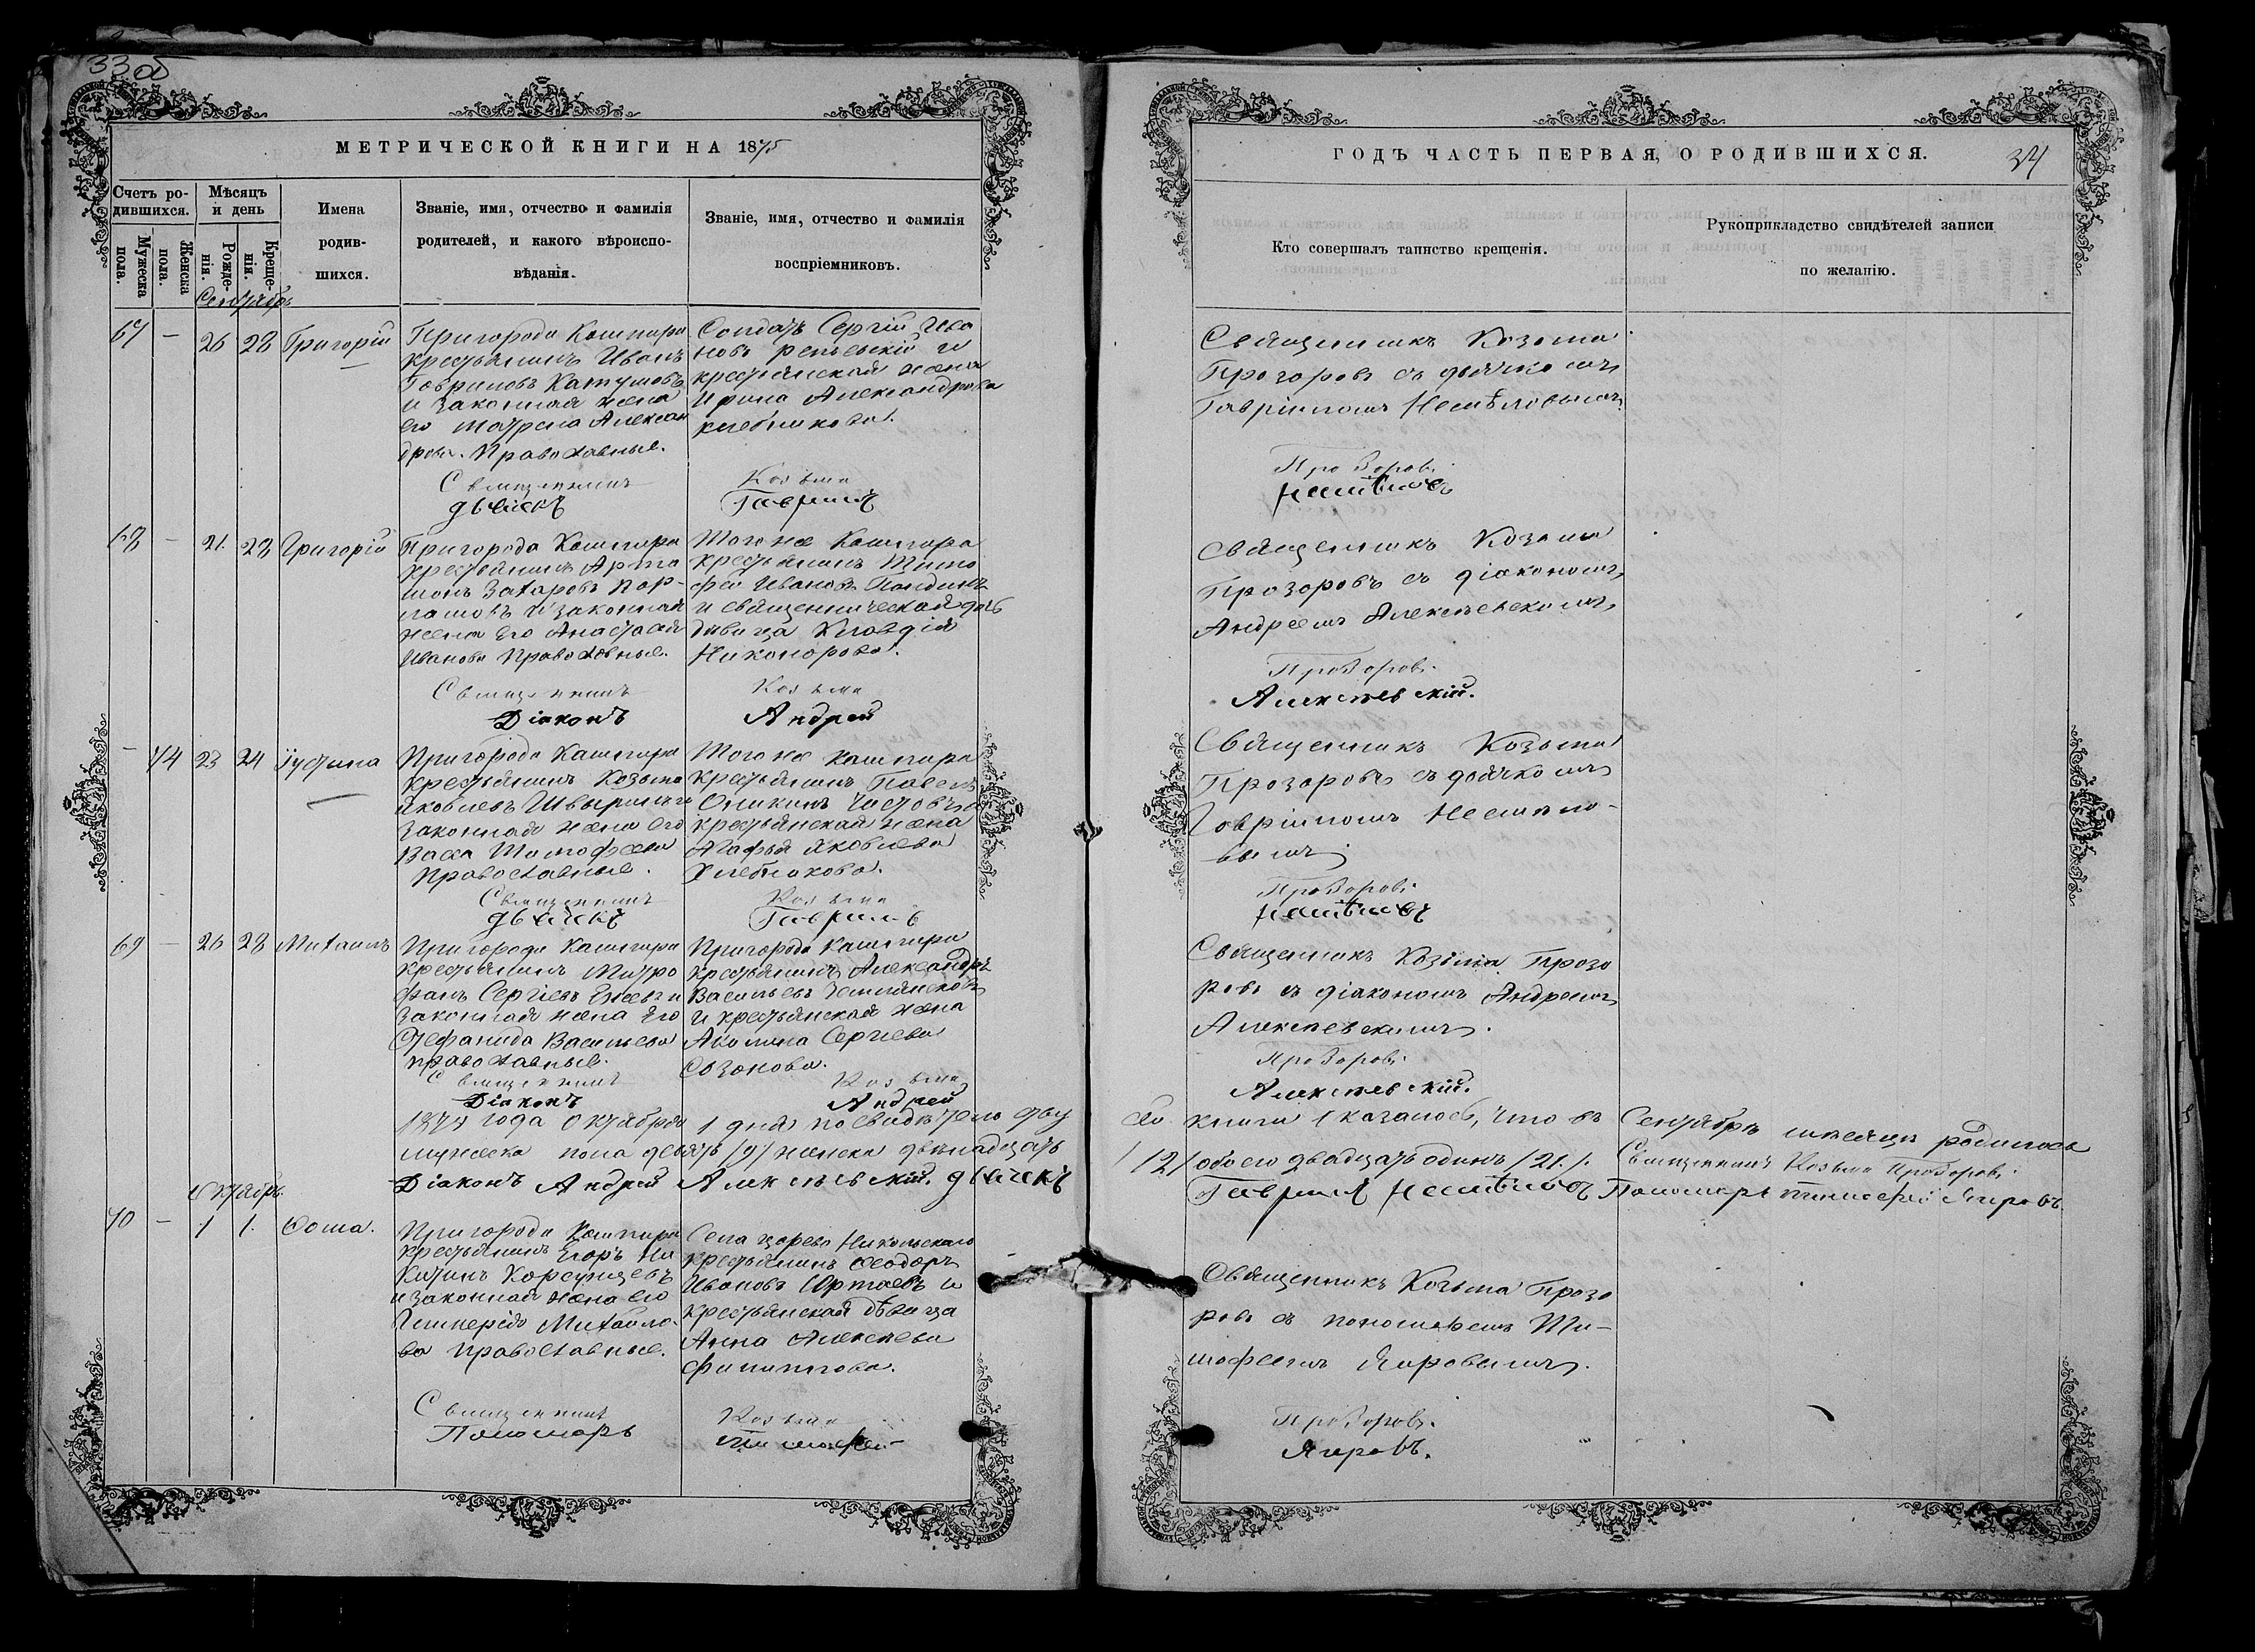 33 об
МЕТРИЧЕСКОЙ КНИГИ НА 1875
Счетъ ро-
дившихся.
Мужеска
пола.
Женска
пола.
Мѣсяцъ
и день
Рожде-
нія.
Креще-
нія.
Имена
родив-
шихся.
Званіе, имя, отчество и фамилія
родителей, и какого вѣроиспо-
вѣданія.
Званіе, имя, отчество и фамилія
воспріемниковъ.
Сентябрь
67 — 26 28 Григорій
Пригорода Кашпира
крестьянинъ Иванъ
Гавриловъ
и законная жена
его Матрена Алексан
дрова. Православные.
Священникъ
дьячекъ
Солдатъ Сергій Ива
новъ и
крестьянская жена
Ирина Александрова
Козьма
Гавриилъ
68 — 21. 28 Григорій
Пригорода Кашпира
крестьянинъ Арта
монъ Захаровъ
и законная
жена его Анастасія
Иванова Православные.
Священникъ
Діаконъ
Того же Кашпира
крестьянинъ Тимо
фей Ивановъ
и священническая дочь
дѣвица Клавдія
Никонорова.
Козьма
Андрей
— 44 23 24 Іустина
Пригорода Кашпира
крестьянинъ Козьма
Яковлевъ
законная жена его
Васса Тимофеева
Православные.
Священникъ
дьячекъ
Того же Кашпира
крестьянинъ Павелъ
крестьянская жена
Агафья Яковлева
Хлебникова.
Козьма
Гавриилъ
69 — 26 28 Михаилъ
Пригорода Кашпира
крестьянинъ Митро
фанъ Сергіевъ
законная жена его
Стефанида Васильева
православные.
Священникъ
Діаконъ
Пригорода Кашпира
крестьянинъ Александръ
Васильевъ
и крестьянская жена
Акилина Сергіева
Созонова.
Козьма
Андрей
года Октября 1 дня по свидѣтельству
мужеска пола девять /9/ женска двѣнадцать
Діаконъ Андрей Алексѣевскій. дьячекъ
Октябрь.
70 — 1 1. Ѳома.
Пригорода Кашпира
крестьянинъ Егоръ Ни
китинъ Корсунцевъ
и законная жена его
Гликерія Михайло-
ва православные.
Священникъ
Пономарь
Села Царево Никольскаго
крестьянинъ Ѳеодоръ
Ивановъ и
крестьянская дѣвица
Анна Алексѣева
Филиппова.
Козьма
Тимофей
ГОДЪ ЧАСТЬ ПЕРВАЯ, О РОДИВШИХСЯ.
34
Кто совершалъ таинство крещенія.
Рукоприкладство свидѣтелей записи
по желанію.
Священникъ Козьма
Прозоровъ съ дьячкомъ
Гавріиломъ Несмѣловымъ
Прозоровъ.
Несмѣловъ
Священникъ Козьма
Прозоровъ съ діакономъ
Андреемъ Алексѣевскимъ
Прозоровъ.
Алексѣевскій.
Священникъ Козьма
Прозоровъ съ дьячкомъ
Гавріиломъ Несмѣло-
вымъ
Прозоровъ.
Несмѣловъ
Священникъ Козьма Прозо
ровъ съ діакономъ Андреемъ
Алексѣевскимъ.
Прозоровъ.
Алексѣевскій.
сей книги оказалось, что въ Сентябрѣ мѣсяцѣ родилось
/12/ обоего двадцать одинъ /21/. Священникъ Козьма Прозоровъ.
Гавриилъ Несмѣловъ Пономарь Тимофей Яировъ.
Священникъ Козьма Прозо
ровъ съ пономаремъ Ти-
мофеемъ Яировымъ.
Прозоровъ.
Яировъ.